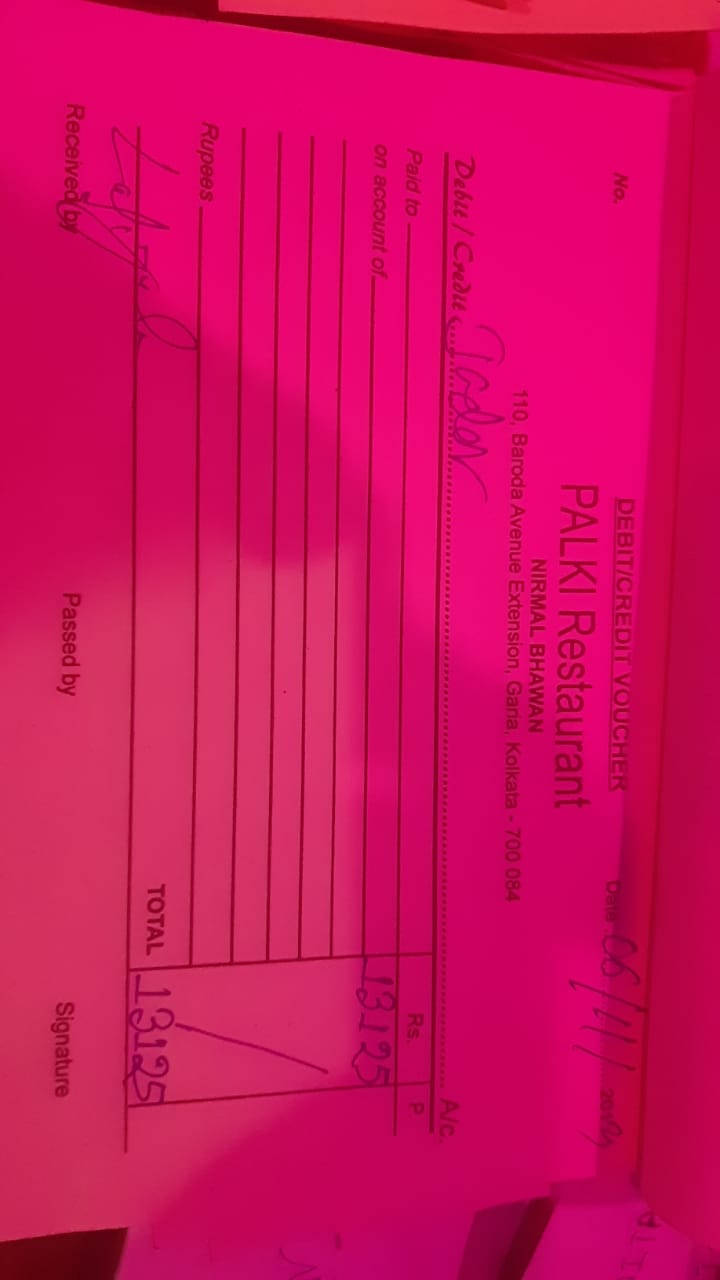 DEBIT/CREDIT VOUCHER
No.
Date 06/11/
PALKI Restaurant
NIRMAL BHAWAN
110, Baroda Avenue Extension, Garia, Kolkata - 700 084
Debit / Credit A/c.
Paid to Rs. P.
on account of 13125
Rupees
TOTAL 13125
Received by Passed by Signature